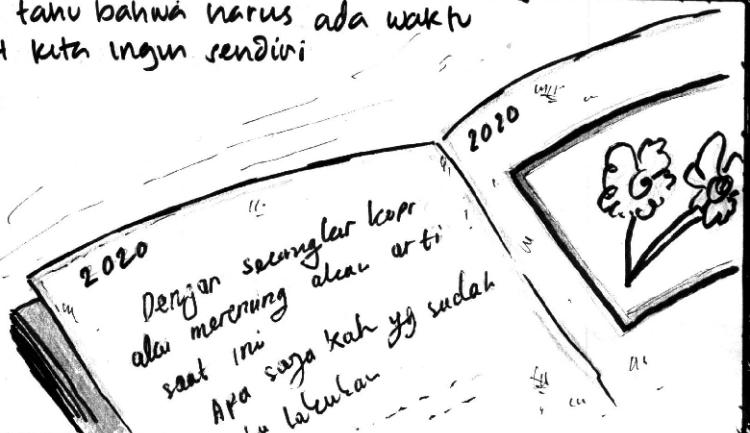 tahu bahwa harus ada waktu
kita ingin sendiri
2020
2020
Dengan secangkir kopi
aku merenung akan arti
saat ini
Apa saja kah yg sudah
lakukan